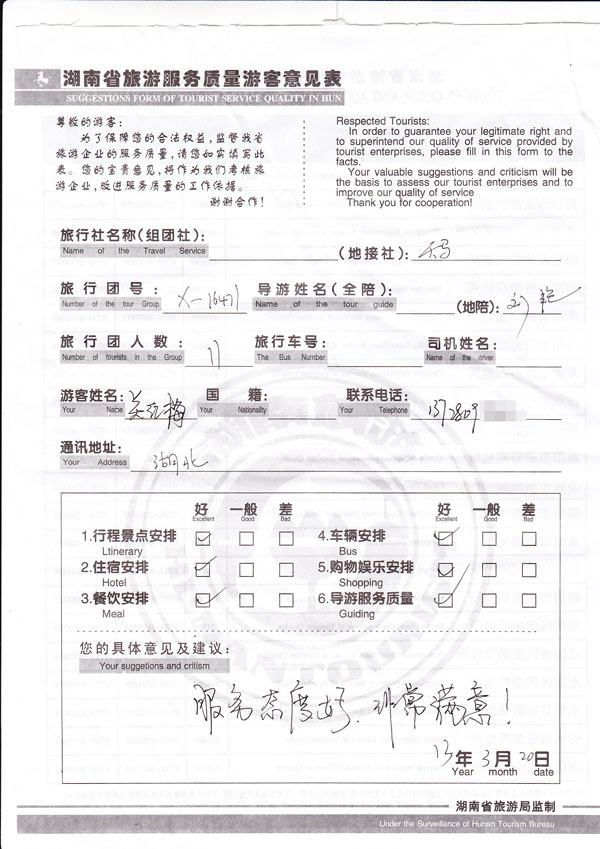 湖南省旅游服务质量游客意见表
SUGGESTIONS FORM OF TOURIST SERVICE QUALITY IN HUN
尊敬的游客:
为了保障您的合法权益,监督我省
旅游企业的服务质量,请您如实填写此
表。您的宝贵意见,将作为我们考核旅
游企业,改进服务质量的工作依据。
谢谢合作!
Respected Tourists:
In order to guarantee your legitimate right and
to superintend our quality of service provided by
tourist enterprises, please fill in this form to the
facts.
Your valuable suggestions and criticism will be
the basis to assess our tourist enterprises and to
improve our quality of service
Thank you for cooperation!
旅行社名称(组团社): (地接社): 天马
Name of the Travel Service
旅行团号: X-16471 导游姓名(全陪) (地陪): 刘艳
Number of the tour Group Name of the tour guide
旅行团人数: 11 旅行车号: 司机姓名:
Number of tourists in the Group The Bus Number Name of the driver
游客姓名: 梅 国籍: 联系电话: 1372809
Your Name Your Nationality Your Telephone
通讯地址: 湖北
Your Address
好 一般 差 好 一般 差
Excellent Good Bad Excellent Good Bad
1.行程景点安排 4.车辆安排
Ltinerary Bus
2.住宿安排 5.购物娱乐安排
Hotel Shopping
3.餐饮安排 6.导游服务质量
Meal Guiding
您的具体意见及建议:
Your suggetions and critism
服务态度好.非常满意!
13年3月20日
Year month date
湖南省旅游局监制
Under the Surveillance of Hunan Tourism Bureau